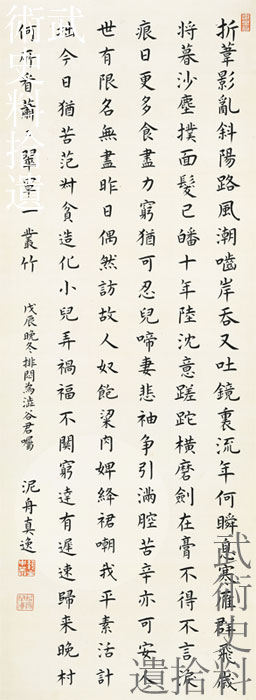 折葦影亂斜陽路風潮嚙岸吞又吐鏡裏流年何瞬息寒雁群飛歲
將暮沙塵撲面髮已皤十年陸沈意蹉跎橫磨劍在膏不得不言淚
痕日更多食盡力窮猶可忍兒啼妻悲袖爭引滿腔苦辛亦可安人
世有限名無盡昨日偶然訪故人奴飽粱肉婢絳裙嘲我平素活計
拙今日猶苦范叔貧造化小兒弄禍福不關窮達有遲速歸來晚村
何所看蕭々翠寒一叢竹
戊辰晚冬排悶為澁谷君囑
泥舟真逸
武術史料拾遺
武術史料拾遺